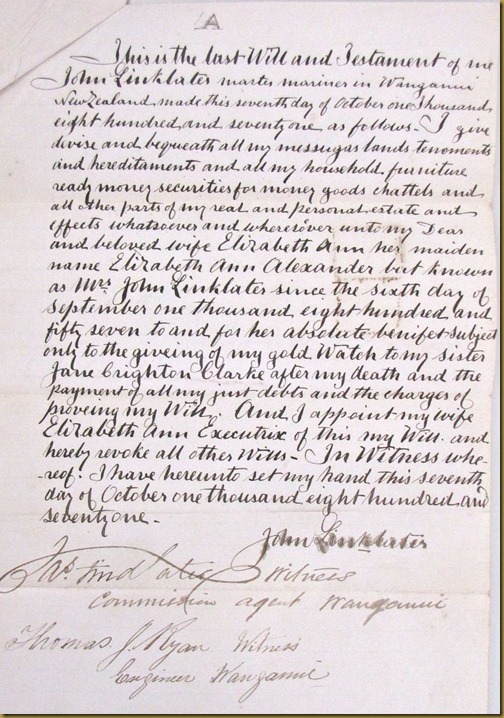 A
This is the last Will and Testament of me
John Linklater master mariner in Wanganui
New Zealand made this seventh day of October one Thousand
eight hundred and seventy one as follows - I give
divise and bequeath all my messugas lands tenoments
and hereditaments and all my household furniture
ready money securities for money goods chattels and
all other parts of my real and personal estate and
effects whatsoever and wheresover unto my Dear
and beloved wife Elizabeth Ann her maiden
name Elizabeth Ann Alexander but known
as Mrs John Linklater since the sixth day of
September one thousand eight hundred and
fifty seven to and for her absolute benifet subject
only to the giveing of my gold Watch to my sister
Jane Crighton Clarke after my death and the
payment of all my just debts and the charges of
proveing my Will. And I appoint my wife
Elizabeth Ann Executrix of this my Will and
hereby revoke all other Wills - In Witness whe
-reof. I have hereunto set my hand this seventh
day of October one thousand eight hundred and
seventy one -
John Linklater
Witness
Commission agent Wanganui
Thomas J. Ryan Witness
Engineer Wanganui